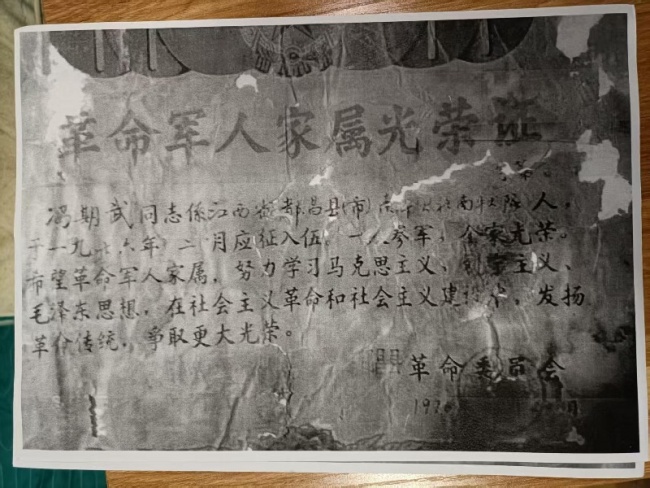 革命军人家属光荣证
冯朝武同志係江西省都昌县(市)南 队人，
于一九七六年 二月应征入伍。一人参军，全家光荣。
希望革命军人家属，努力学习马克思主义、列宁主义、
毛泽东思想，在社会主义革命和社会主义建设中，发扬
革命传统，争取更大光荣。
革命委员会
197 月